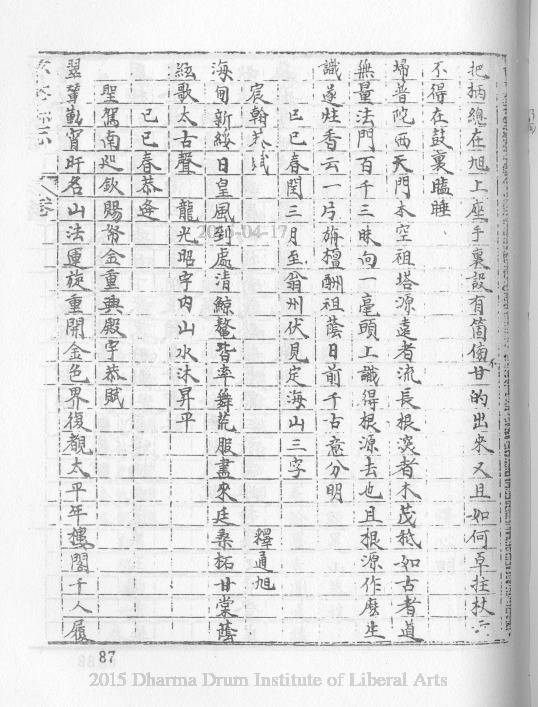 把柄總在旭上座手裏設有箇傍不甘的出來又且如何卓拄杖云
不得在鼓裏瞌睡
埽普陀西天門木空祖塔源遠者流長根深者木茂秪如古者道
無量法門百千三昧向一毫頭上識得根源去也且根源作麼生
識遂炷香云一片旃檀酬祖蔭日前千古意分明
己巳春閏三月至翁州伏見定海山三字
宸翰恭賦
釋通旭
海甸新綏日皇風到處清鯨鼇皆率舞荒服盡來廷桑柘甘棠蔭
絃歌太古聲 龍光昭宇內山水沐昇平
己巳春恭逢
聖駕南巡欽賜帑金重興殿宇恭賦
翠輦勤宵旰名山法運旋重開金色界復覩太平年樓閣千人履
87
2015-04-17
2015 Dharma Drum Institute of Liberal Arts